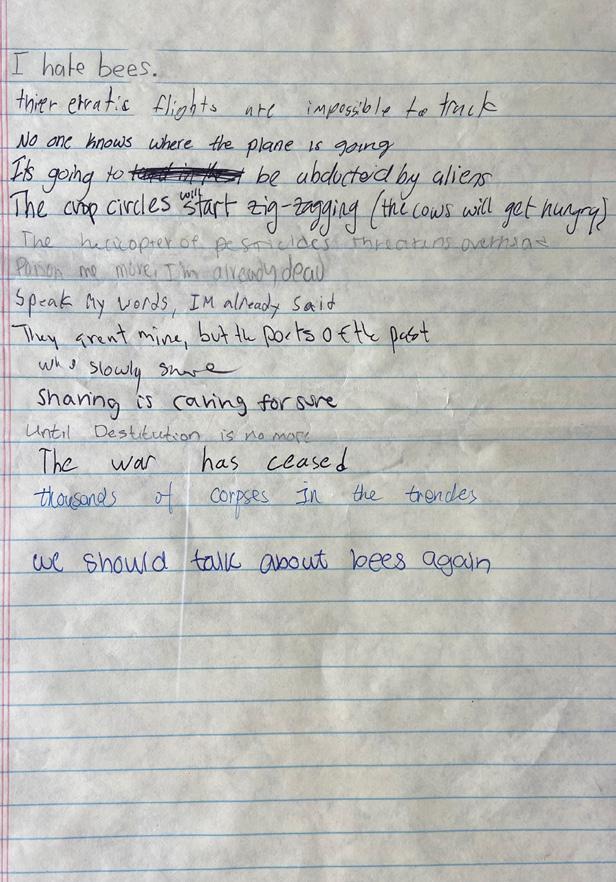 I hate bees.
thier erratic flights are impossible to track
No one knows where the plane is going
It's going to be abducted by aliens
The crop circles will start zig-zagging (the cows will get hungry)
The helicopter of pesticides threatens overhead
Poison me more, I'm already dead
Speak my words, IM already said
They arent mine, but the poets of the past
who slowly share
Sharing is caring for sure
Until Destitution is no more
The war has ceased
thousands of corpses in the trenches
we should talk about bees again